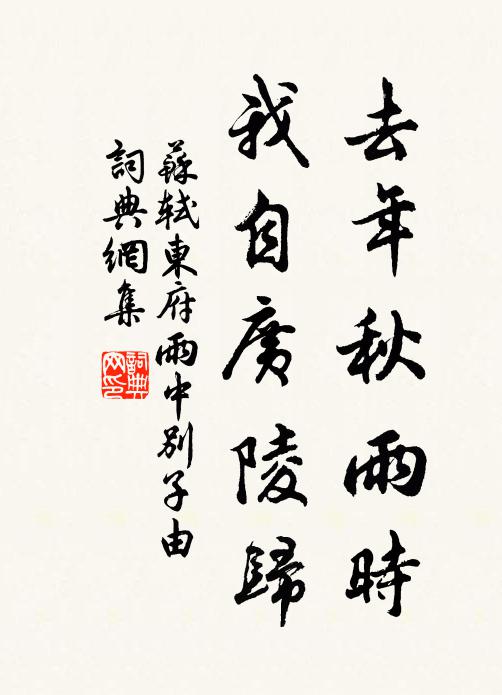 去年秋雨時
我自廣陵歸
蘇軾東府雨中別子由
詞典網集
詞典網印